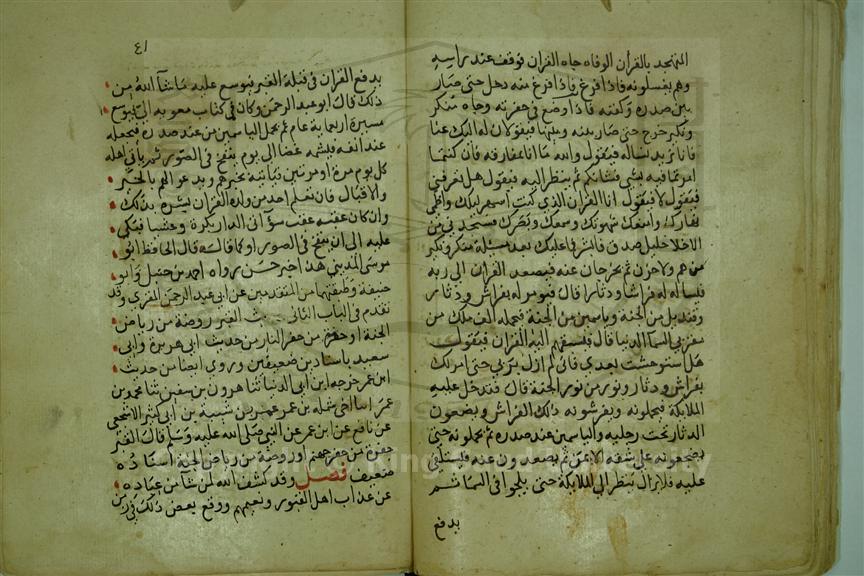 المتهجد بالقرآن الوفاه جاه القران فوقف عند راسه
وهم يغسلونه فاذا فرغ منه دخل حتى صار
بين صدره وكفنه فاذا وضع في حفرته وجاه منكر
ونكير خرج حتى صار بينه وبينهما فيقولان له اليك عنا
فانا نريد نساله فيقول والله ما انا بمفارقه فان كنتما
امرتما فيه بشي فشانكم ثم ينظر اليه فيقول هل تعرفني
فيقول لا فيقول انا القران الذي كنت اسهر ليلك واظمي
نهارك وامنعك شهوتك وسمعك وبصرك فستجدني من
الاخلا خليل صدق فابشر فما عليك بعد مسيلة منكر ونكير
من هم ولا حزن ثم يخرجان عنه فيصعد القران الى ربه
فيساله له فراشا ودثارا قال فيومر له بفراش ودثار
وقنديل من الجنة وياسمين من الجنة فيحمله الف ملك من
مقربي السما الدنيا قال فيسبقهم اليه القران فيقول
هل استوحشت بعدي فاني لم ازل بربي حتى امر لك
بفراش ودثار ونور من نور الجنة قال فتدخل عليه
الملايكة فيحملونه ويفرشونه ذلك الفراش ويضعون
الدثار تحت رجليه والياسمين عند صدره ثم يحملونه حتى
يضجعونه على شقه الايمن ثم يصعدون عنه فيستلقي
عليه فلا يزال ينظر الى الملايكة حتى يلجوا في السما ثم
يدفع
٤١
يدفع القران في قبلة القبر فيوسع عليه ما شا الله من
ذلك قال ابو عبد الرحمن وكان في كتاب معويه الي يوسع
مسيرة اربعماية عام ثم يحمل الياسمين من عند صدره فيجعله
عند انفه فيشمه غضا الى يوم ينفخ في الصور ثم ياتي اهله
كل يوم مرة او مرتين فياتيه بخبرهم ويدعو لهم بالخير
والاقبال فان تعلم احد من ولده القران بشره بذلك
وان كان عقبه عقب سوء اتى الدار بكرة وعشيا فبكى
عليه الى ان ينفخ في الصور او كما قال قال الحافظ ابو
موسى المديني هذا خبر حسن رواه احمد بن حنبل وابو
خيثمة وطبقتهما من المتقدمين عن ابي عبد الرحمن المقري وقد
تقدم في الباب الثاني حديث القبر روضة من رياض
الجنة او حفرة من حفر النار من حديث ابي هريرة وابي
سعيد باسنادين ضعيفين وروي ايضا من حديث
ابن عمر خرجه ابن ابي الدنيا ثنا هرون بن سفين ثنا محمد بن
عمر عن نافع عن ابن عمر عن النبي صلى الله عليه وسلم قال القبر
حفرة من حفر جهنم او روضة من رياض الجنة اسناده
ضعيف فصل وقد كشف الله لمن شا من عباده
عن عذاب اهل القبور ونعيمهم ووقع بعض ذلك في زمن